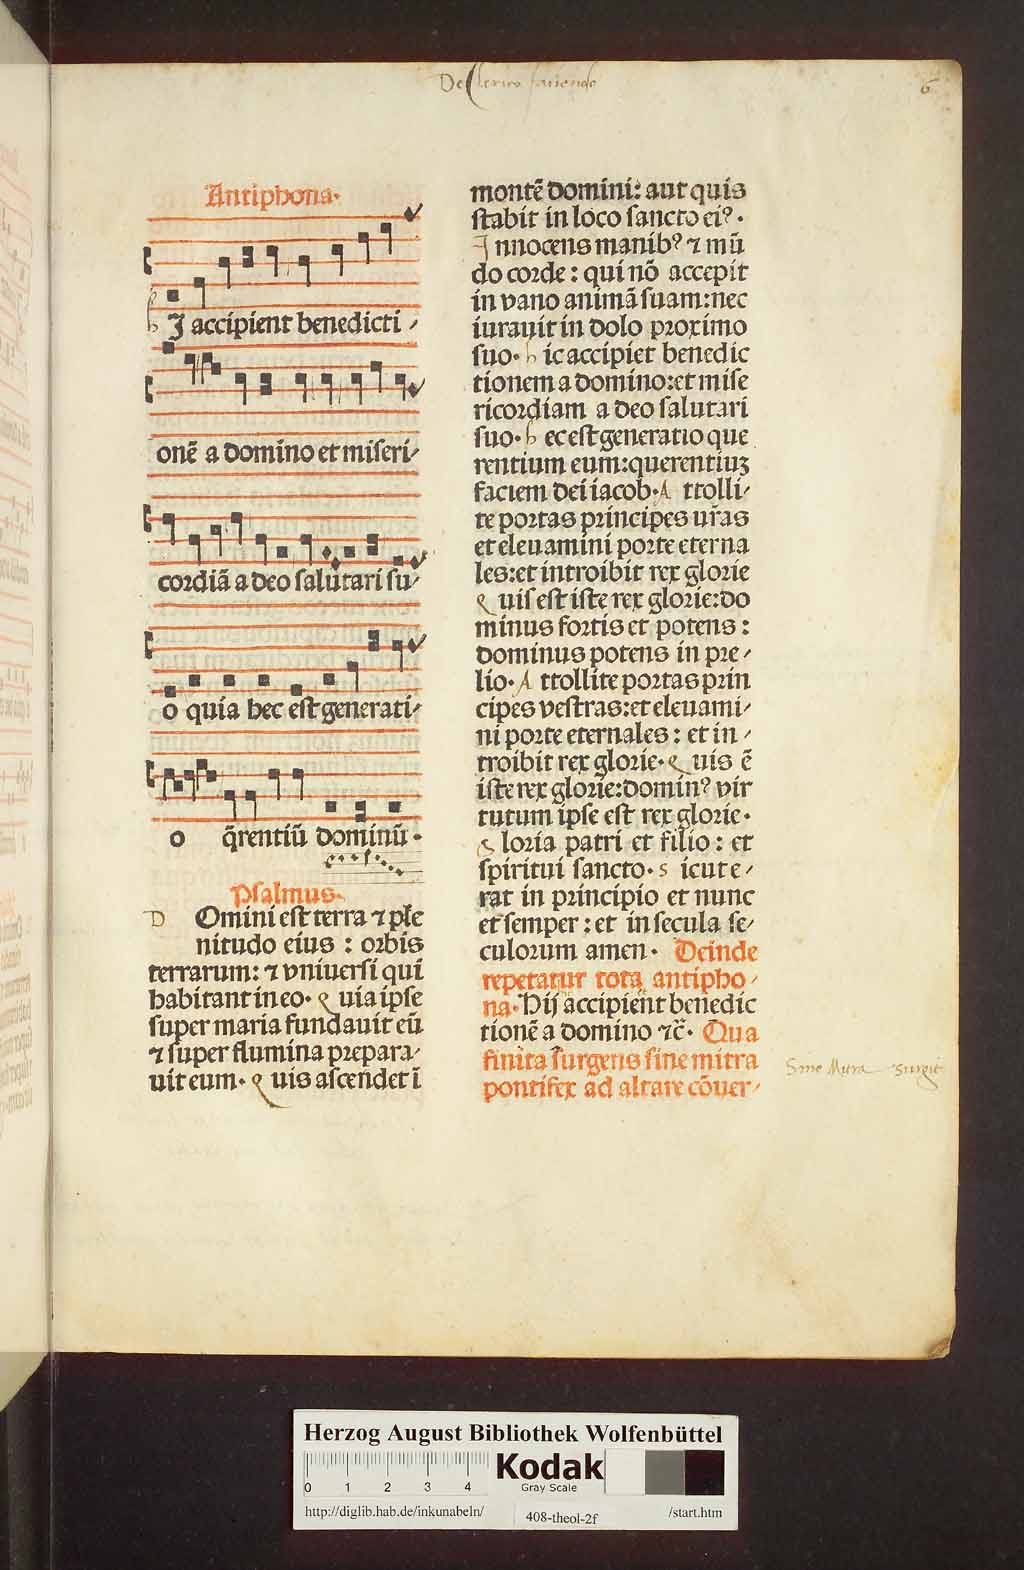 De Clerico faciendo
6
Antiphona.
hJ accipient benedicti /
onē a domino et miseri/
cordiā a deo salutari su/
o quia hec est generati/
o q̄rentiū dominū.
Psalmus.
D Omini est terra ⁊ ple
nitudo eius : orbis
terrarum: ⁊ vniuersi qui
habitant in eo. Quia ipse
super maria fundauit eū
⁊ super flumina prepara/
uit eum. Quis ascendet ī
montē domini: aut quis
stabit in loco sancto ei⁹.
Innocens manib⁹ ⁊ mū
do corde : qui nō accepit
in vano animā suam: nec
iurauit in dolo proximo
suo. hic accipiet benedic
tionem a domino: et mise
ricordiam a deo salutari
suo. hec est generatio que
rentium eum: querentiuꝫ
faciem dei iacob. Attolli/
te portas principes vr̄as
et eleuamini porte eterna
les: et introibit rex glorie
Quis est iste rex glorie: do
minus fortis et potens :
dominus potens in pre/
lio. Attollite portas prin
cipes vestras: et eleuami/
ni porte eternales : et in/
troibit rex glorie. Quis ē
iste rex glorie: domin⁹ vir
tutum ipse est rex glorie.
Gloria patri et filio : et
spiritui sancto. sicut e/
rat in principio et nunc
et semper : et in secula se/
culorum amen. Deinde
repetatur tota antipho/
na. Hij accipient benedic
tionē a domino ⁊c̄. Qua
finita surgens sine mitra
pontifex ad altare cōuer/
Sine Mitra surgit
Herzog August Bibliothek Wolfenbüttel
0 1 2 3 4
Kodak
Gray Scale
http://diglib.hab.de/inkunabeln/ 408-theol-2f /start.htm